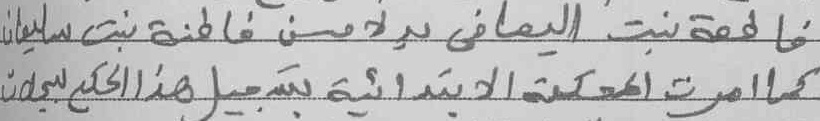 فاطمة بنت اليماني بدلا من فاطنة بنت سليمان
كما امرت المحكمة الابتدائية بتسجيل هذا الحكم بسجلات